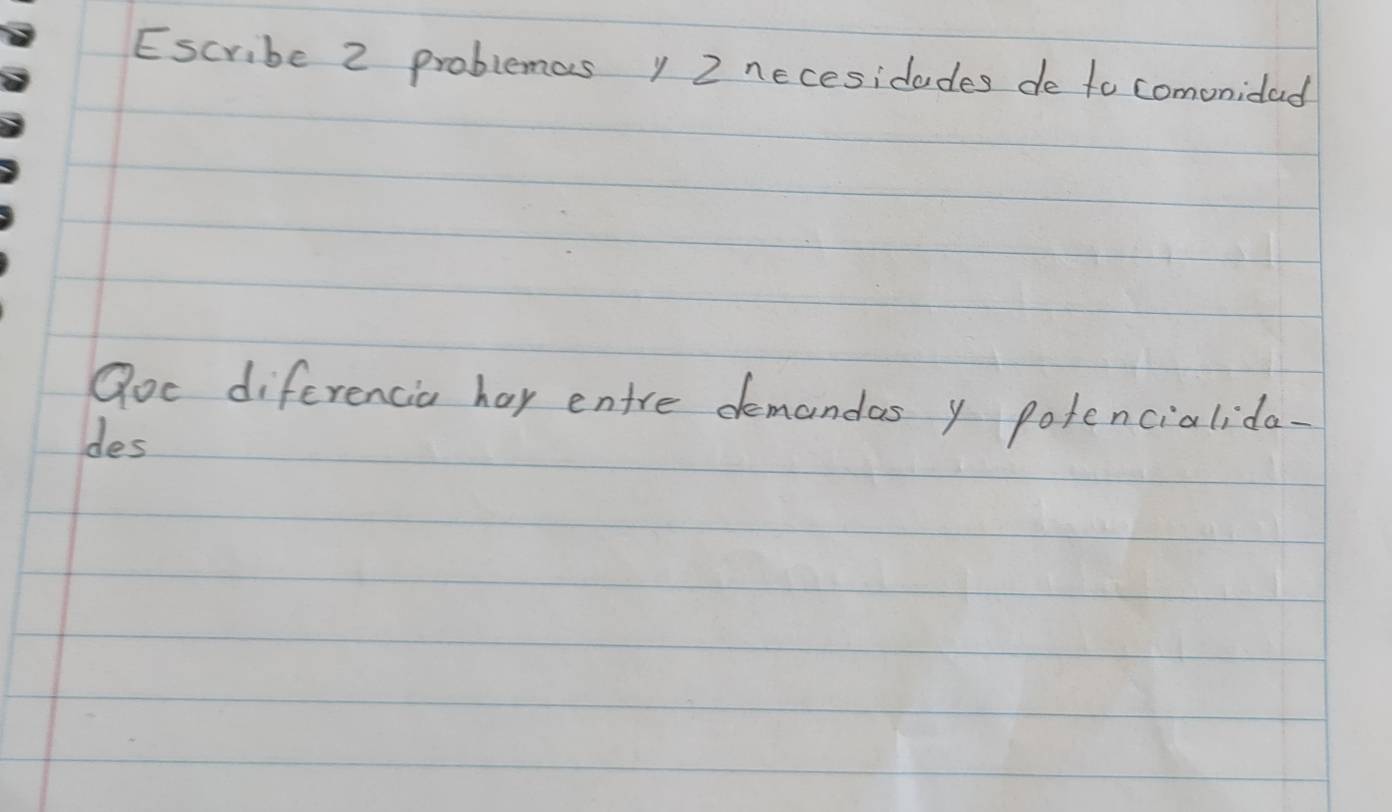 Escribe 2 problemas y 2 necesidades de tu comunidad
Que diferencia hay entre demandas y potencialida-
des